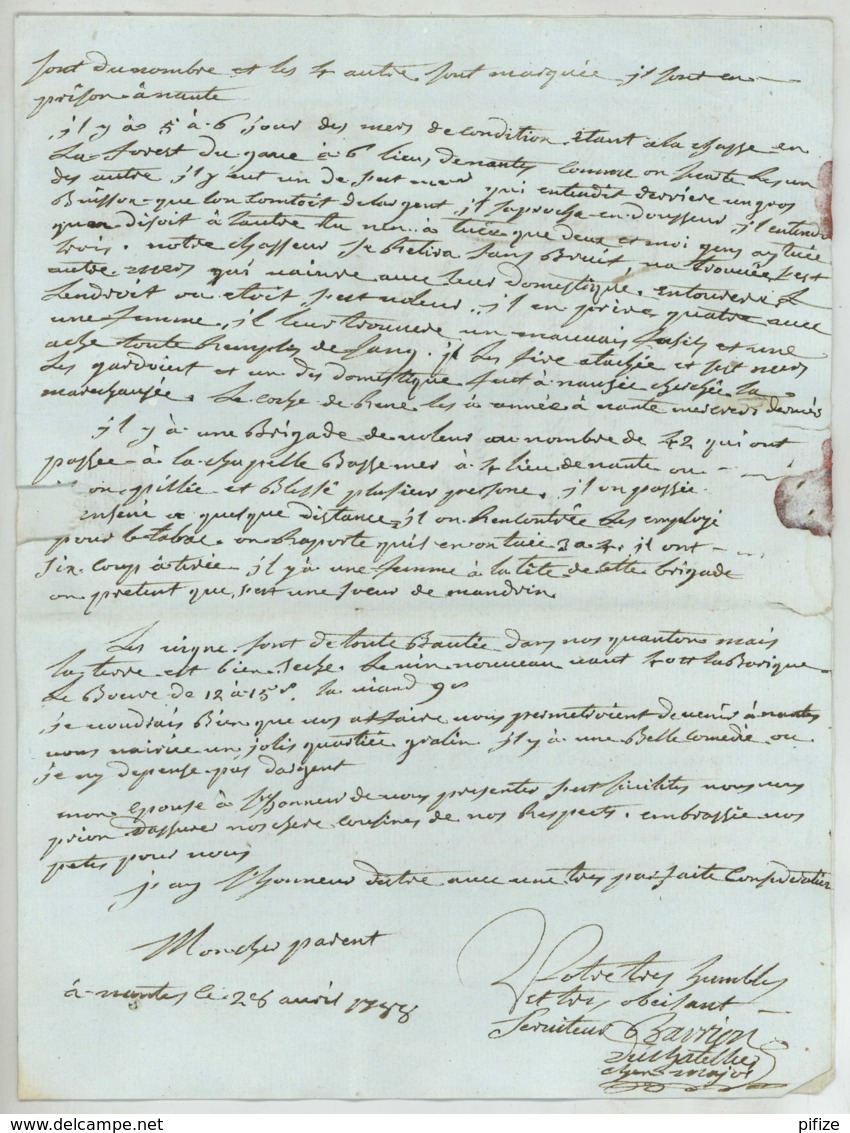 sont du nombre et les 4 autre sont marquée jl sont en
prison à nante
jl y à 5 à 6 jour des mers de condition étant a la chasse en
La forest du gave à 6 lieu de nantes comme on poste les un
des autre, jl y eut un de ses mers qui entendit derriere un gros
Buisson que lon comtoit de largent, jl saprocha en dousseur, jl entendit
quon disoit à lautre tu nen à tuée que deux et moi gens ay tuée
trois. notre chasseur se retira sans Bruit
autre mers qui vainre avec leur domestiqué, entourere le
Lendroit ou étoit voleur, jl en prire quatre avec
une femme, jl leur trouvere un mauvais fusil et une
ache toute remplis de sang. jl les fire atachée et
Les gardoint et un des domestique fut à cherchée la
marechausée. Le coche de rene les à année à nante mercredi dernié
jl y à une Brigade de voleur au nombre de 42 qui ont
passée à la chapelle Basse mer à 4 lieu de nante ou
on pillée et Blessé plusieur persone. jl on passée
ensuite à quelque distance, jl on rencontrée les employé
pour le tabac. on raporte quis en on tuée 3 a 4. jl ont
six coup à tirée jl y à une femme à la tête de cette brigade
on pretent que sest une soeur de mandrin
Les vigne sont de toute Bautée dans nos quanton mais
la terre est bien seche. Le vin nouveau vaut 40 tt la Barique
Le Beurre de 12 à 15 s. la viand 9 s
je voudrais Bien que vos affaire vous permetroient de venir à nantes
vous vairiée un jolis quartiée gralin jl y à une Belle comedie ou
je ny depense pas dargent
mon epouse à lhonneur de vous presenter nous vous
prion dassurer nos chere cousines de nos respects. embrassée vos
petis pour nous
jay lhonneur destre avec une tres parfaite Consideration
Mon cher parent
Votre tres humble
à nantes le 28 avril 1788
et tres obeisant
Serviteur Barrion
Duchatellier
chen major
pifize